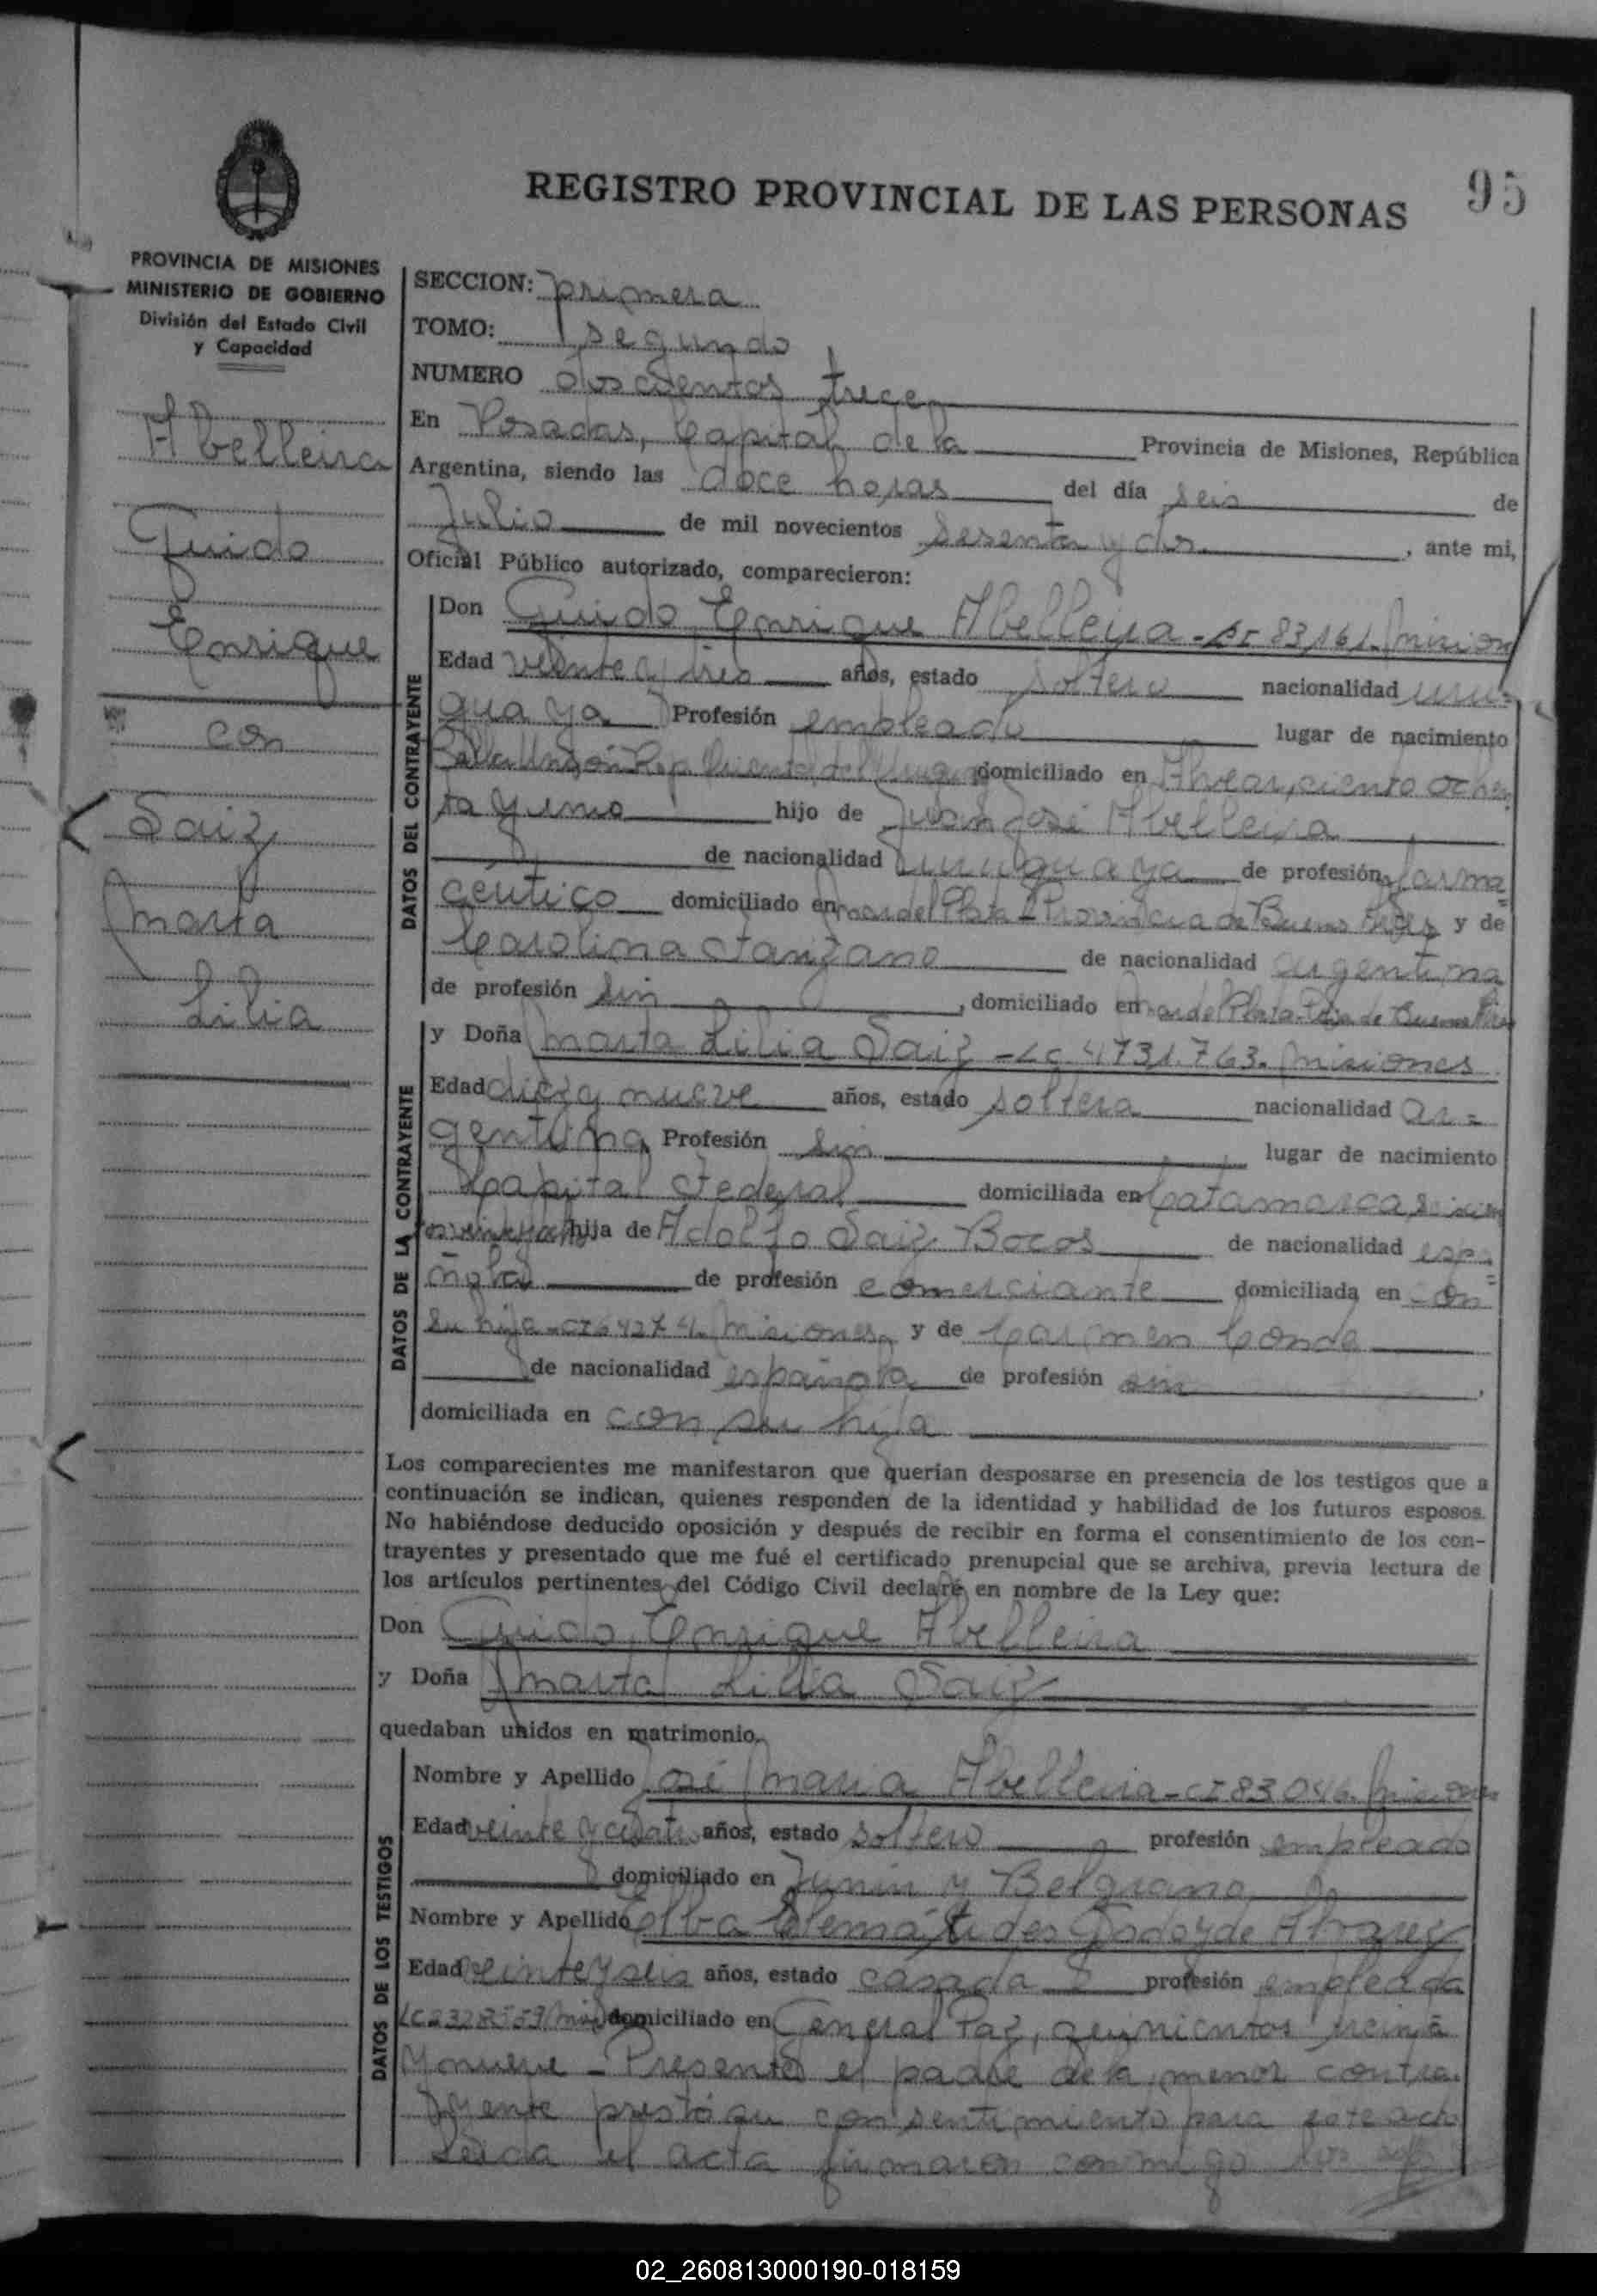 REGISTRO PROVINCIAL DE LAS PERSONAS
95
PROVINCIA DE MISIONES
MINISTERIO DE GOBIERNO
División del Estado Civil
y Capacidad
Abelleira
Guido
Enrique
con
Saiz
Marta
Lilia
SECCION: primera
TOMO: segundo
NUMERO doscientos trece
En Posadas, Capital de la Provincia de Misiones, República
Argentina, siendo las doce horas del día seis de
Julio de mil novecientos sesenta y dos, ante mi,
Oficial Público autorizado, comparecieron:
DATOS DEL CONTRAYENTE
Don Guido Enrique Abelleira - CI 83161. Mision
Edad veinte y tres años, estado soltero nacionalidad uru=
guaya Profesión empleado lugar de nacimiento
Bella Unión Rep Oriental del domiciliado en Alvear, ciento ochen
ta y uno hijo de Juan José Abelleira
de nacionalidad uruguaya de profesión farma=
céutico domiciliado en Mar del Plata Provincia de Buenos Aires y de
Carolina Stanzano de nacionalidad argentina
de profesión sin, domiciliado en Mar del Plata-Pcia de Buenos Aires
DATOS DE LA CONTRAYENTE
y Doña Marta Lilia Saiz - LC. 4731.763. Misiones
Edad diez y nueve años, estado soltera nacionalidad ar=
gentina Profesión sin lugar de nacimiento
Capital Federal domiciliada en Catamarca
hija de Adolfo Saiz Bocos de nacionalidad espa=
ñola de profesión comerciante domiciliada en con
su hija - CI 64274. Misiones y de Carmen Conde
de nacionalidad española de profesión sin,
domiciliada en con su hija
Los comparecientes me manifestaron que querían desposarse en presencia de los testigos que a
continuación se indican, quienes responden de la identidad y habilidad de los futuros esposos.
No habiéndose deducido oposición y después de recibir en forma el consentimiento de los con-
trayentes y presentado que me fué el certificado prenupcial que se archiva, previa lectura de
los artículos pertinentes del Código Civil declaré en nombre de la Ley que:
Don Guido Enrique Abelleira
y Doña Marta Lilia Saiz
quedaban unidos en matrimonio.
DATOS DE LOS TESTIGOS
Nombre y Apellido José Maria Abelleira - CI 83046. Misiones
Edad veinte y cuatro años, estado soltero profesión empleado
domiciliado en Junin y Belgrano
Nombre y Apellido Elba Godoy de Alvarez
Edad veinte y seis años, estado casada profesión empleada
domiciliado en General Paz, quinientos treinta
y nueve - Presente el padre de la menor contra
yente prestó su consentimiento para este acto
Leida el acta firmaron conmigo los
02_260813000190-018159